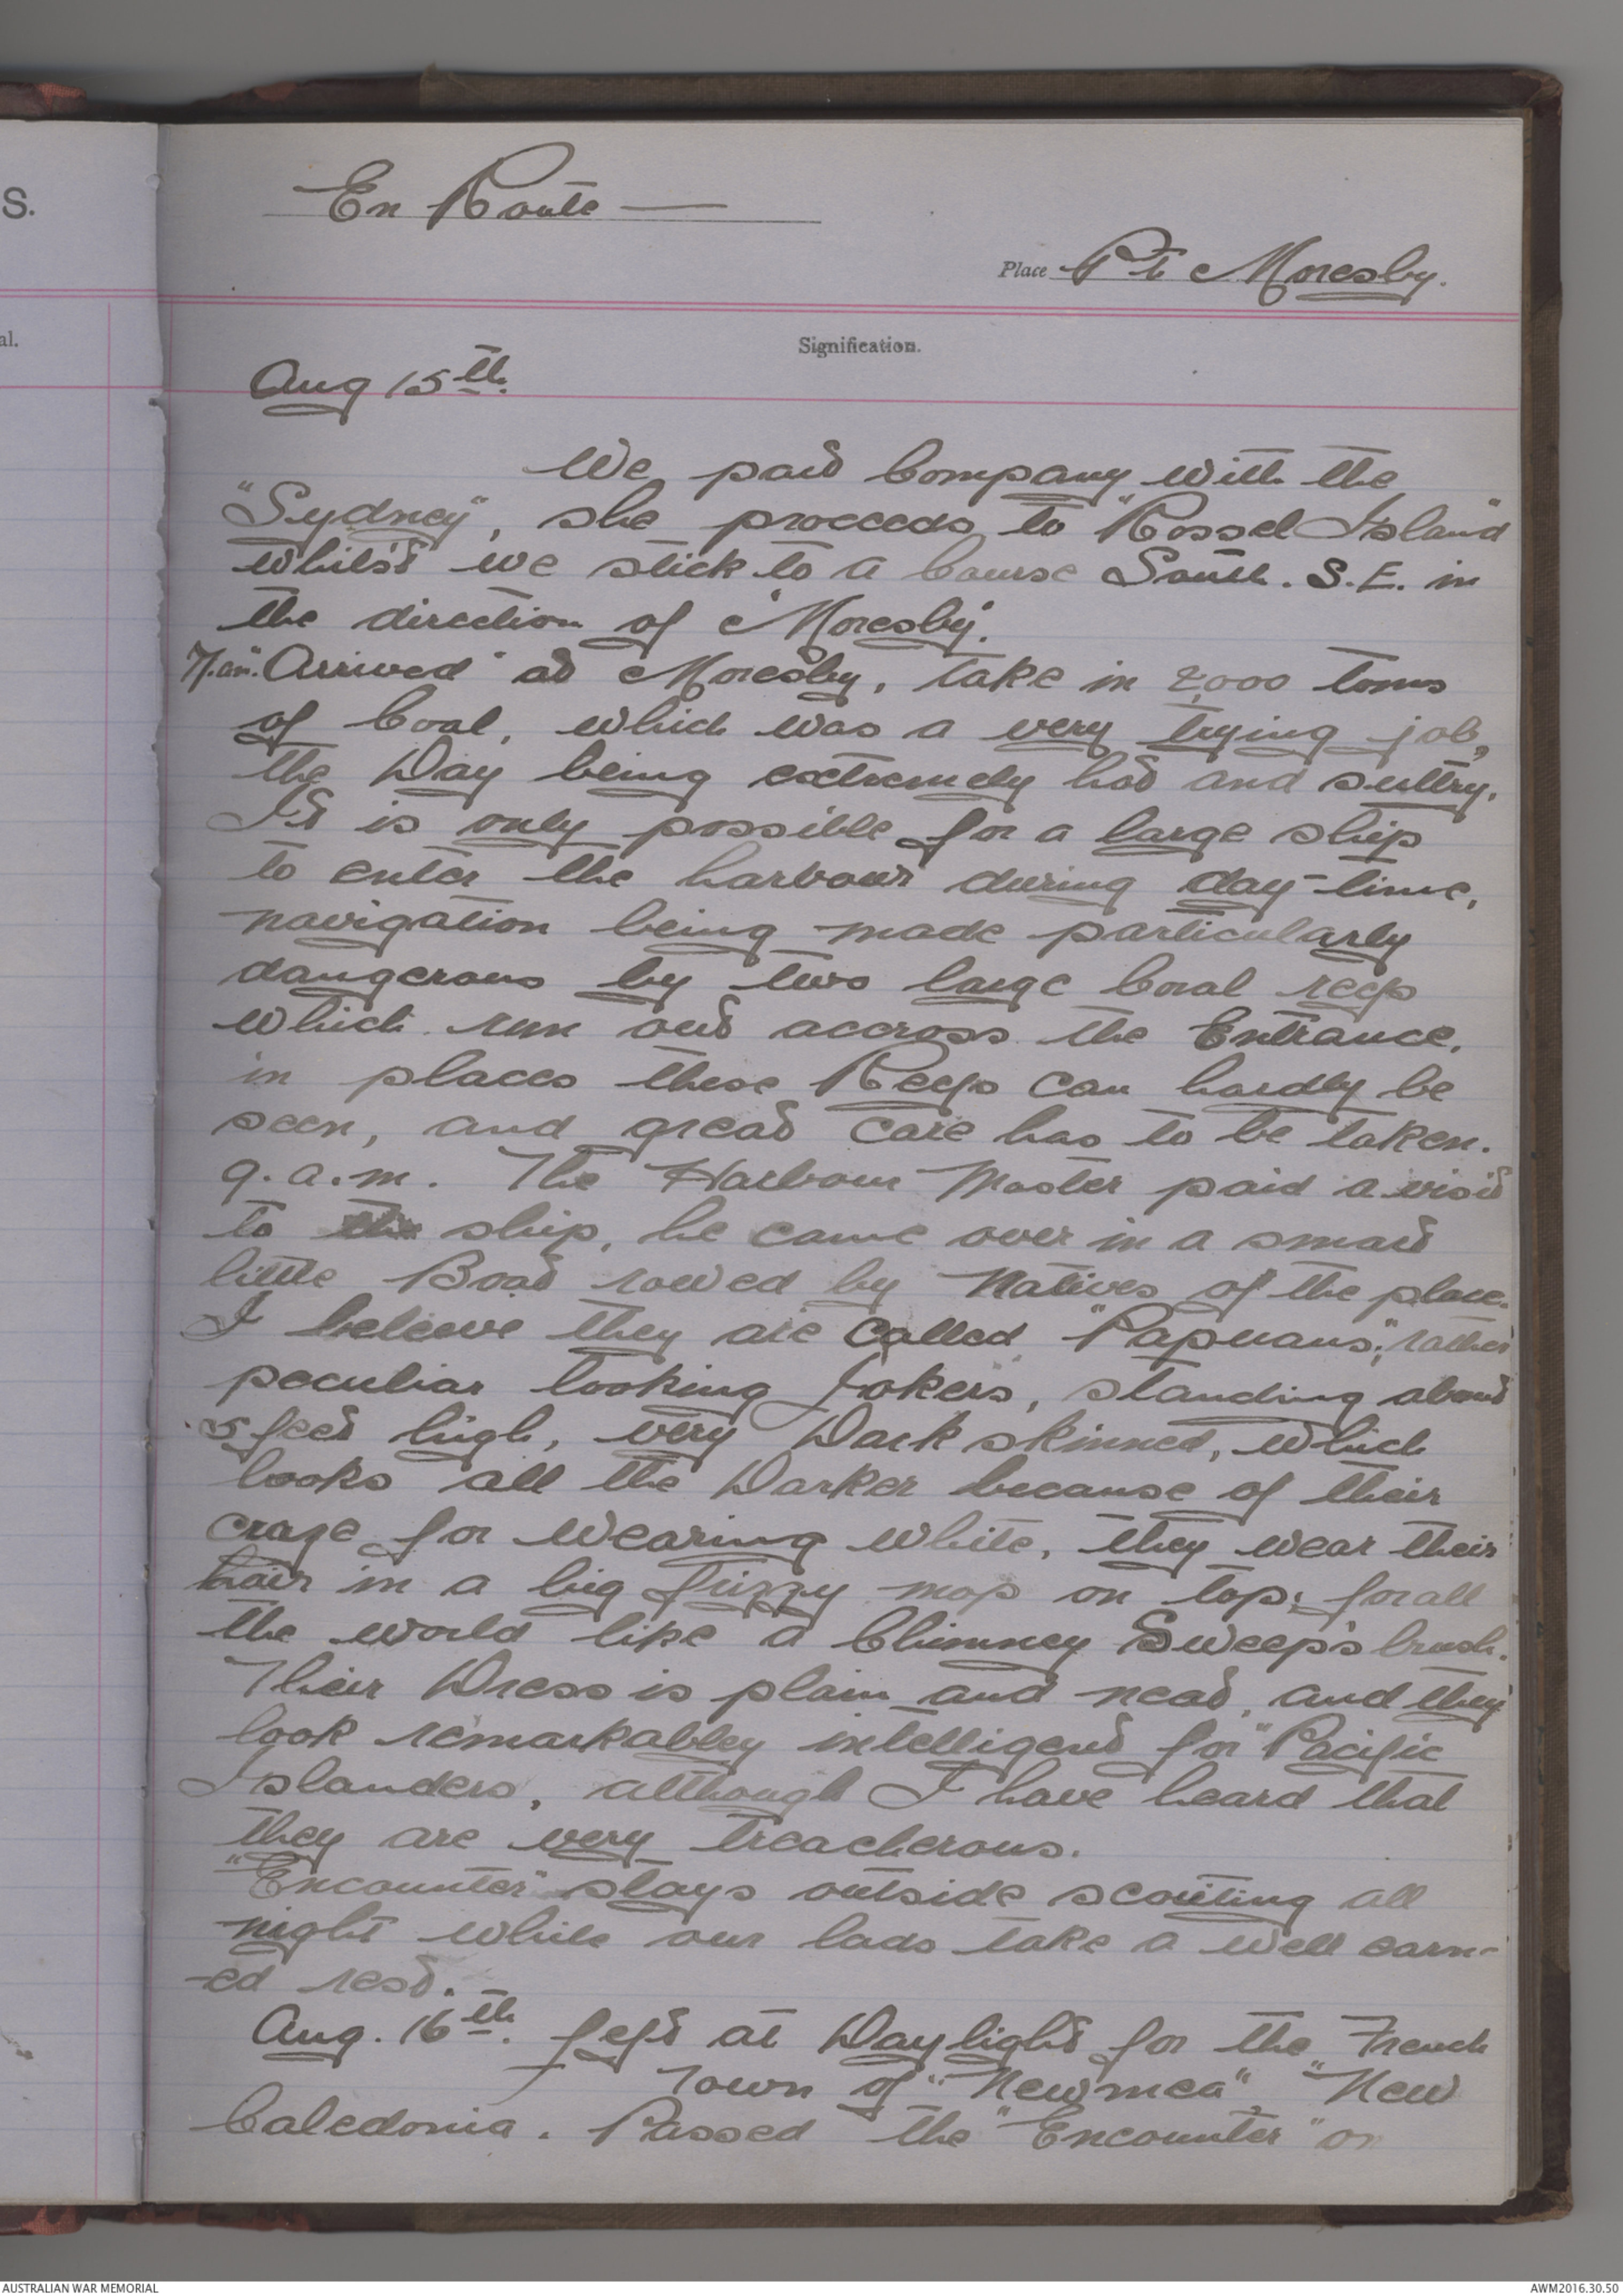 S.
al.
En Route —
Place Pt Moresby.
Signification.
Aug 15th.
We part Company with the
"Sydney", she proceeds to "Rossel Island"
whilst we stick to a Course South. S.E. in
the direction of "Moresby".
7.am. Arrived at Moresby, take in 2,000 tons
of Coal, which was a very trying job,
the Day being extremely hot and sultry.
It is only possible for a large ship
to enter the harbour during day-time,
navigation being made particularly
dangerous by two large Coral reefs
which run out accross the Entrance,
in places these Reefs can hardly be
seen, and great care has to be taken.
9.a.m. The Harbour Master paid a visit
to the ship, he came over in a smart
little Boat rowed by Natives of the place.
I beleive they are called "Papuans"; rather
peculiar looking Jokers, standing about
5 feet high, very Dark skinned, which
looks all the Darker because of their
craze for wearing white, they wear their
hair in a big frizzy mop on top; for all
the world like a Chimney Sweep's brush.
Their Dress is plain and neat, and they
look remarkabley intelligent for "Pacific
Islanders, although I have heard that
they are very treacherous.
"Encounter" stays outside scouting all
night while our lads take a well earn-
-ed rest.
Aug. 16th. Left at Daylight for the French
Town of "Newmea", "New
Caledonia. Passed the "Encounter" on
AUSTRALIAN WAR MEMORIAL
AWM2016.30.50